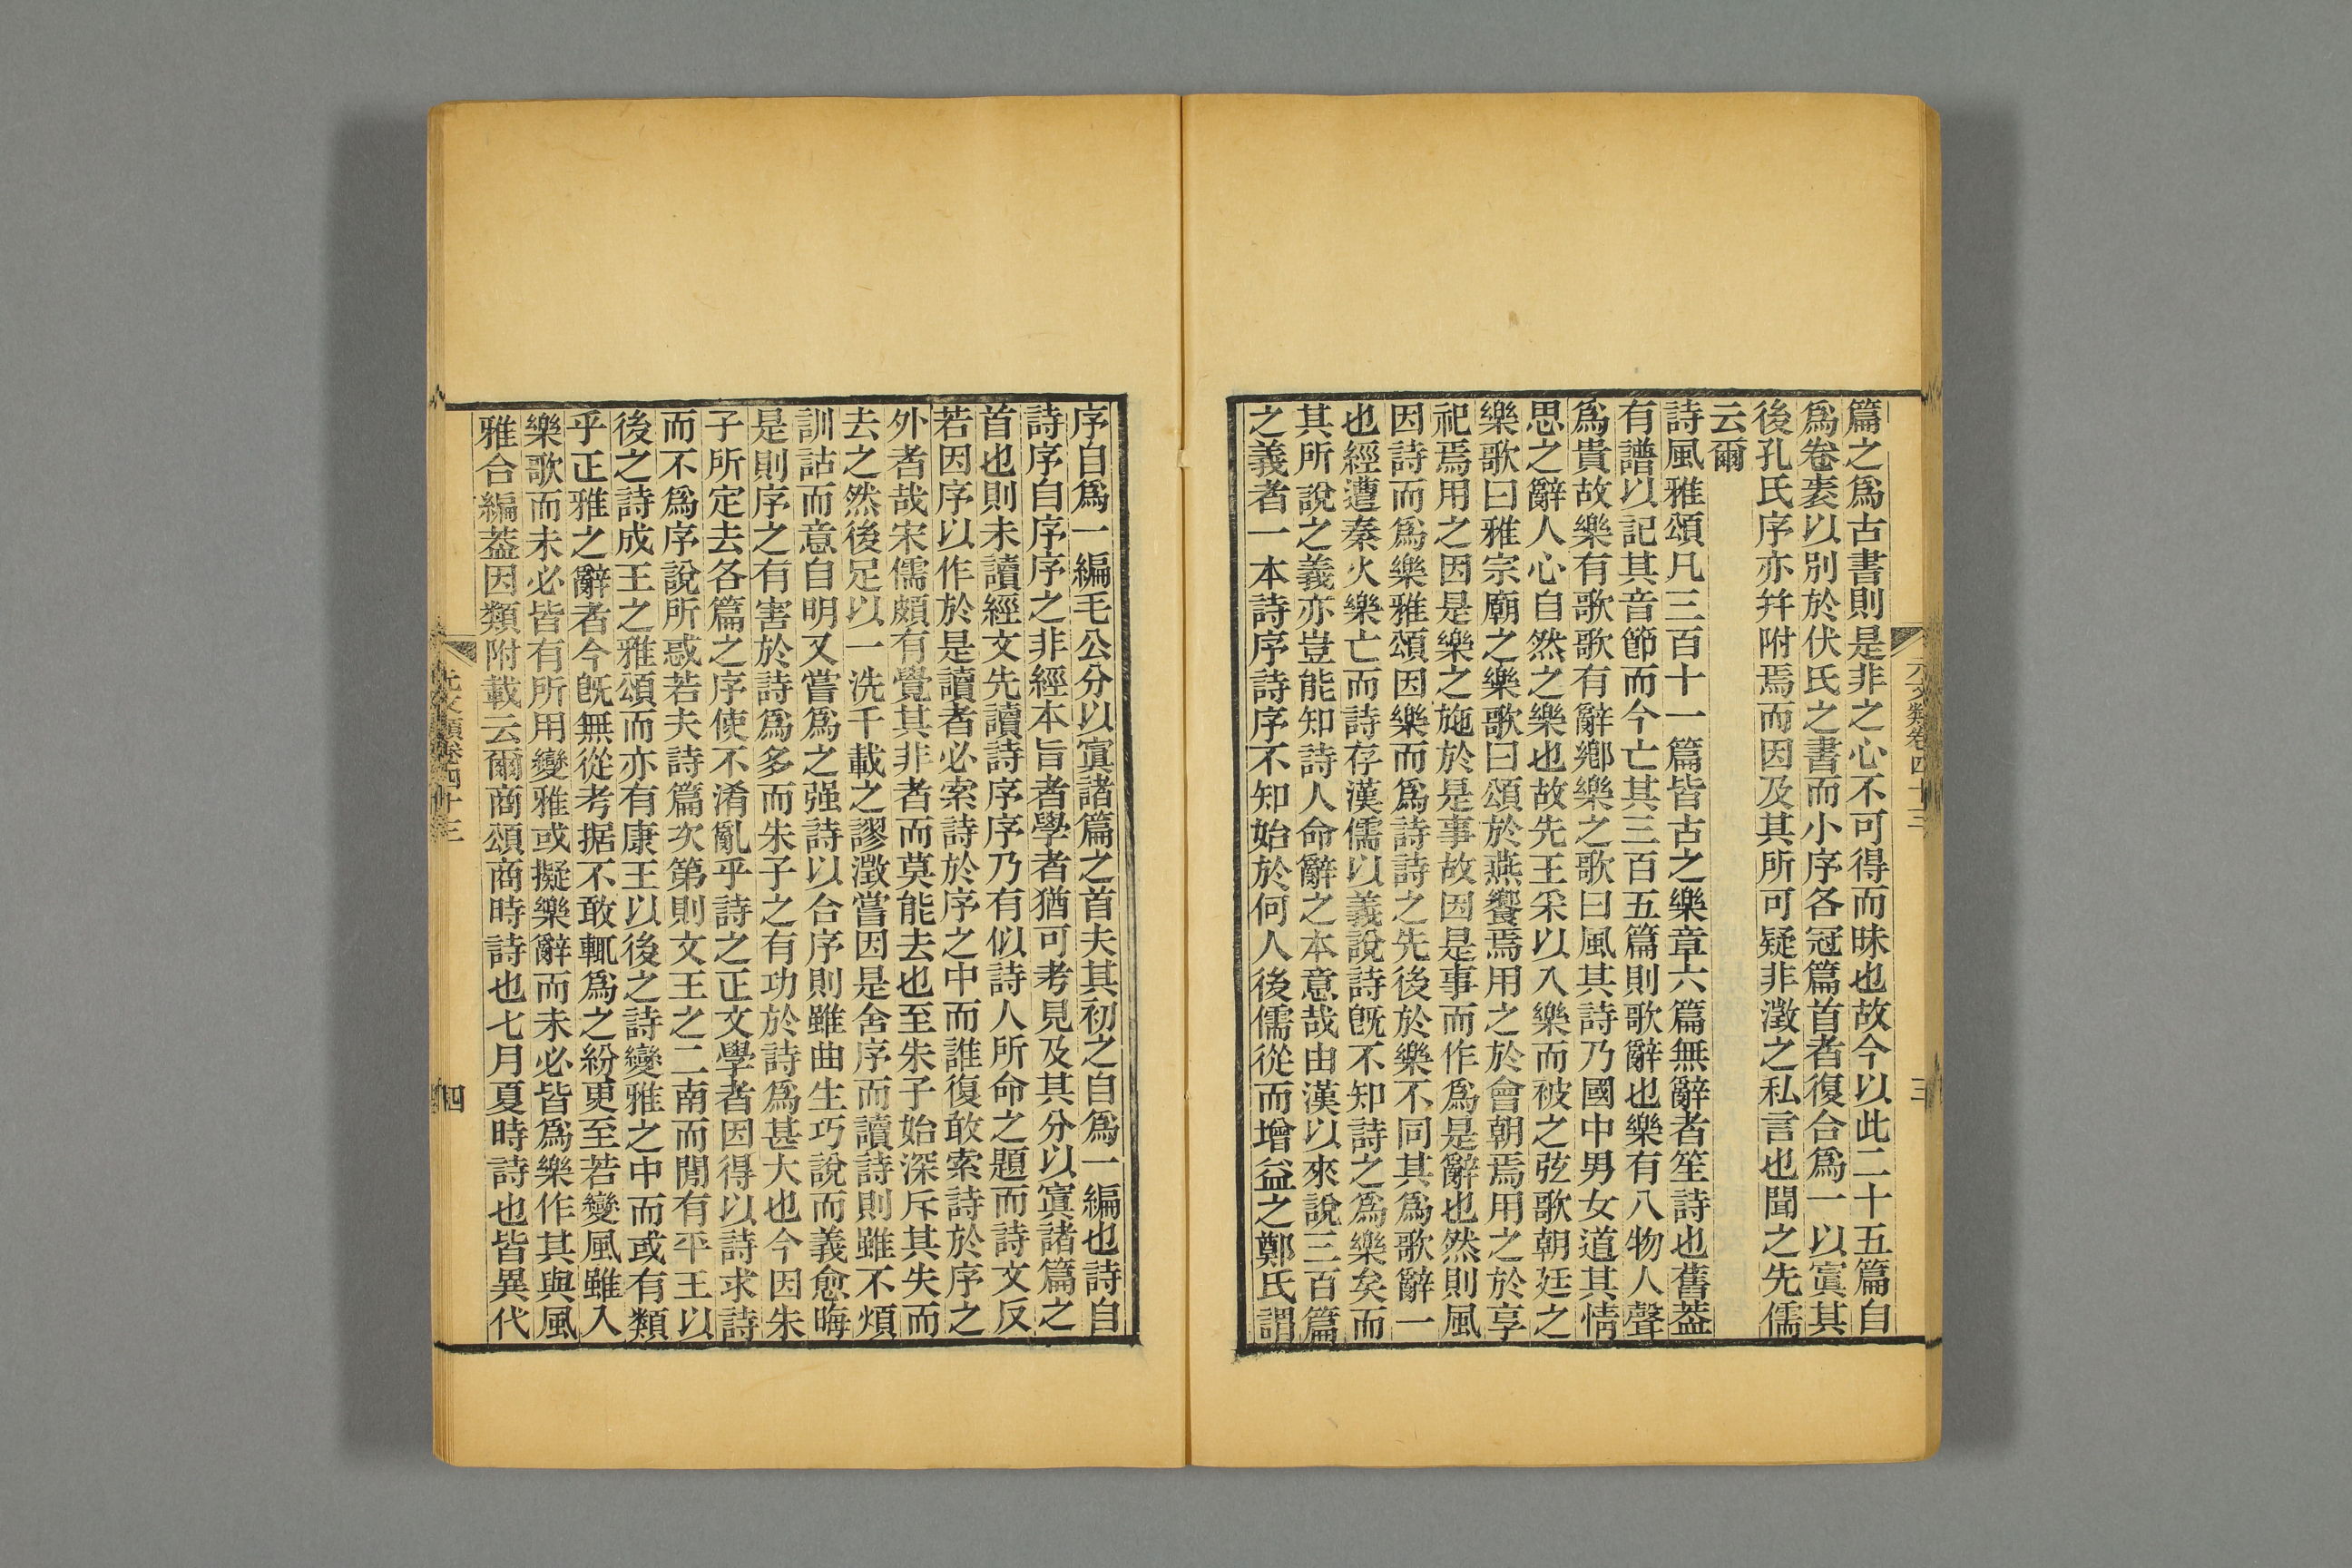 篇之爲古書則是非之心不可得而昧也故今以此二十五篇自
爲卷袠以別於伏氏之書而小序各冠篇首者復合爲一以寘其
後孔氏序亦幷附焉而因及其所可疑非澂之私言也聞之先儒
云爾
詩風雅頌凡三百十一篇皆古之樂章六篇無辭者笙詩也舊葢
有譜以記其音節而今亡其三百五篇則歌辭也樂有八物人聲
爲貴故樂有歌歌有辭鄕樂之歌曰風其詩乃國中男女道其情
思之辭人心自然之樂也故先王采以入樂而被之弦歌朝廷之
樂歌曰雅宗廟之樂歌曰頌於燕饗焉用之於會朝焉用之於享
祀焉用之因是樂之施於是事故因是事而作爲是辭也然則風
因詩而爲樂雅頌因樂而爲詩詩之先後於樂不同其爲歌辭一
也經遭秦火樂亡而詩存漢儒以義說詩旣不知詩之爲樂矣而
其所說之義亦豈能知詩人命辭之本意哉由漢以來說三百篇
之義者一本詩序詩序不知始於何人後儒從而增益之鄭氏謂
元文類卷四十三
三
序自爲一編毛公分以寘諸篇之首夫其初之自爲一編也詩自
詩序自序序之非經本旨者學者猶可考見及其分以寘諸篇之
首也則未讀經文先讀詩序序乃有似詩人所命之題而詩文反
若因序以作於是讀者必索詩於序之中而誰復敢索詩於序之
外者哉宋儒頗有覺其非者而莫能去也至朱子始深斥其失而
去之然後足以一洗千載之謬澂嘗因是舍序而讀詩則雖不煩
訓詁而意自明又嘗爲之强詩以合序則雖曲生巧說而義愈晦
是則序之有害於詩爲多而朱子之有功於詩爲甚大也今因朱
子所定去各篇之序使不淆亂乎詩之正文學者因得以詩求詩
而不爲序說所惑若夫詩篇次第則文王之二南而閒有平王以
後之詩成王之雅頌而亦有康王以後之詩變雅之中而或有類
乎正雅之辭者今旣無從考据不敢輒爲之紛更至若變風雖入
樂歌而未必皆有所用變雅或擬樂辭而未必皆爲樂作其與風
雅合編葢因類附載云爾商頌商時詩也七月夏時詩也皆異代
元文類卷四十三
四